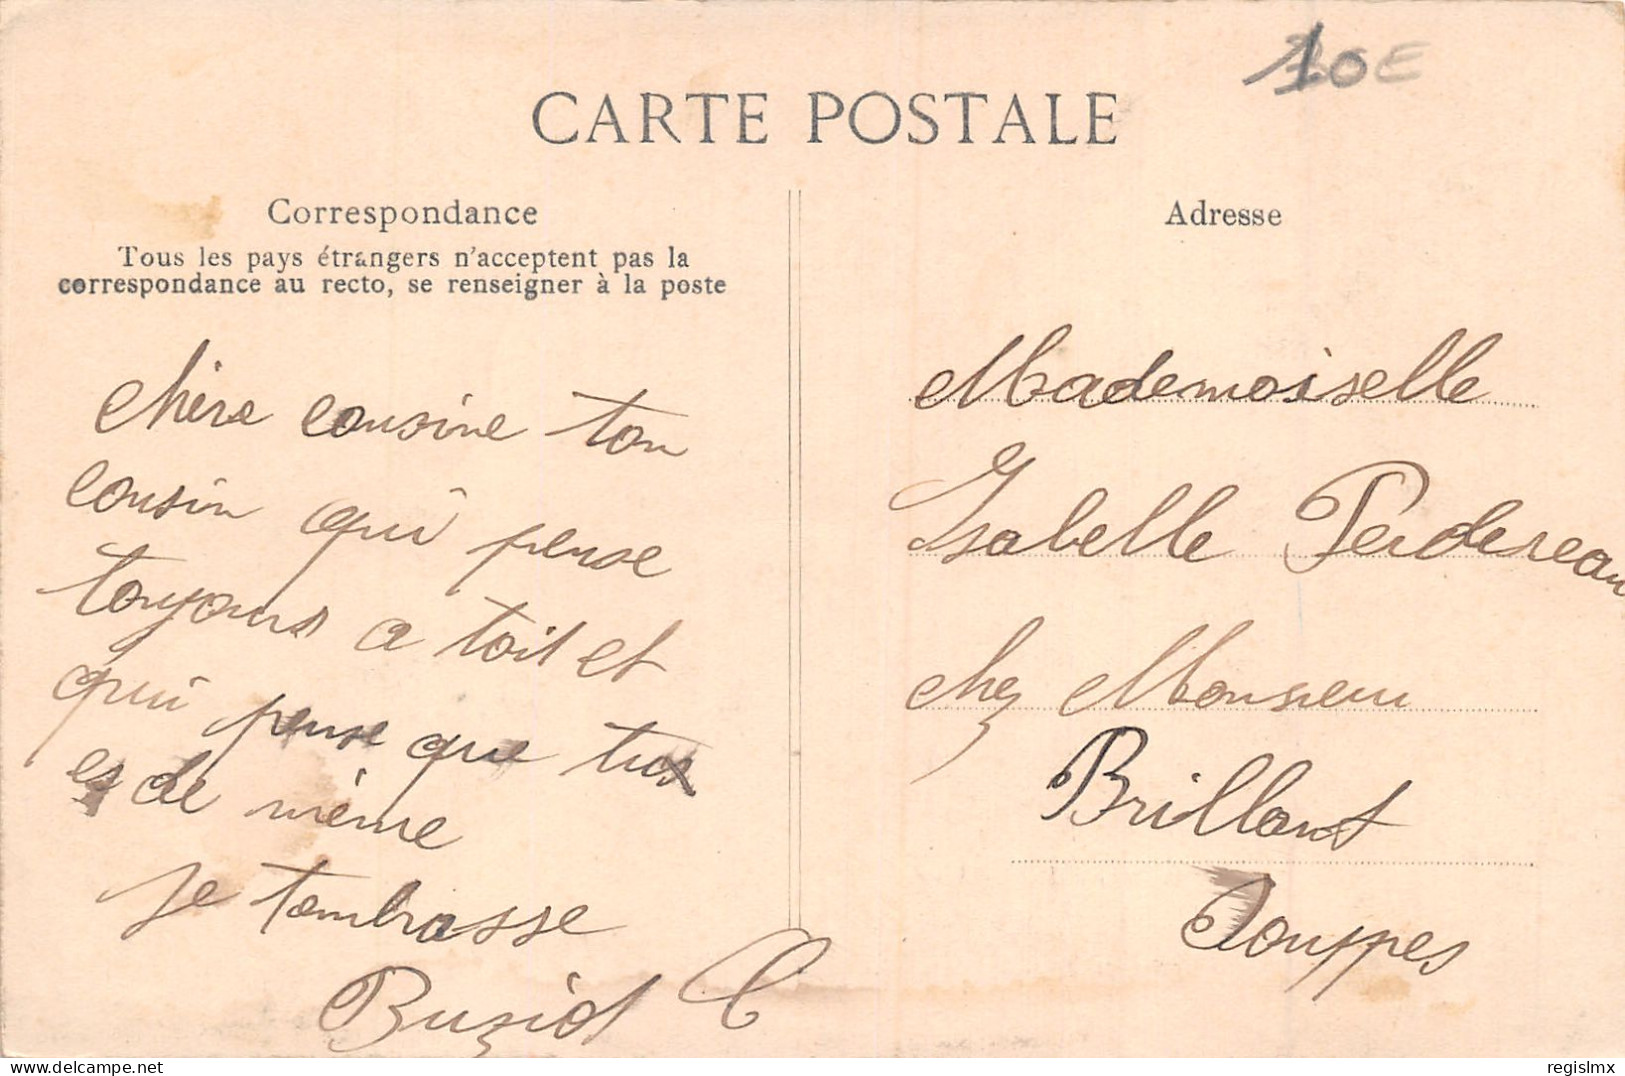 10E
CARTE POSTALE
Correspondance
Tous les pays étrangers n'acceptent pas la
correspondance au recto, se renseigner à la poste
chère cousine ton
cousin qui pense
toujours a toit et
qui pense que tu
es de même
je tembrasse
Buziot C
Adresse
Mademoiselle
Isabelle Perdereau
chez Monsieur
Brillant
Souppes
delcampe.net
regislmx